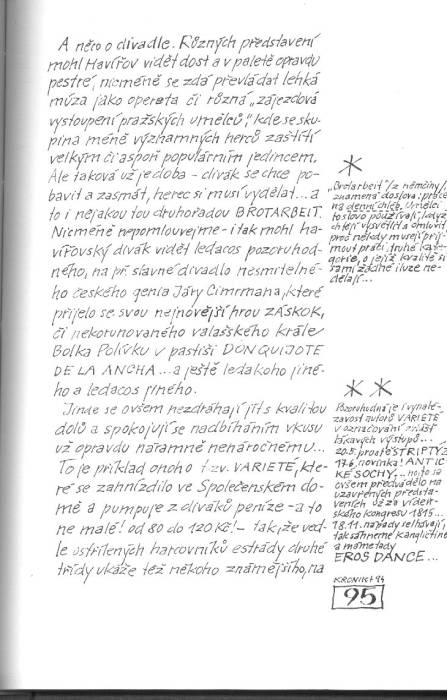 A něco o divadle. Různých představení
mohl Havířov vidět dost a v paletě opravdu
pestré, nicméně se zdá převládat lehká
múza jako opereta či různá „zájezdová
vystoupení pražských umělců", kde se sku-
pina méně významných herců zaštítí
velkým či aspoň populárním jedincem.
Ale taková už je doba - divák se chce po-
bavit a zasmát, herec si musí vydělat...a
to i nějakou tou druhořadou BROTARBEIT.
Nicméně nepomlouvejme - i tak mohl ha-
vířovský divák vidět ledacos pozoruhod-
ného, na př. slavné divadlo nesmrtelné-
ho českého genia Járy Cimrmana, které
přijelo se svou nejnovější hrou ZÁSKOK,
či nekorunovaného valašského krále
Bolka Polívku v pastiši DON QUIJOTE
DE LA ANCHA...a ještě ledakoho jiné-
ho a ledacos jiného.
Jinde se ovšem nezdráhají jít s kvalitou
dolů a spokojují se nadbíháním vkusu
už opravdu náramně nenáročnému...
To je příklad onoho tzv. VARIETE, kte-
ré se zahnízdilo ve Společenském do-
mě a pumpuje z diváků peníze - a to
ne malé! od 80 do 120 Kč! - takže ved-
le ostřílených harcovníků estrády druhé
třídy ukáže též někoho známějšího, na
*
„Brotarbeit" /z němčiny/
znamená doslova: práce
na denní chléb. Umělci
to slovo používají, když
chtějí vysvětlit a omluvit,
proč někdy musejí přij-
mout práci druhé kate-
gorie, o jejíž kvalitě si
sami žádné iluze ne-
dělají...
* *
Pozoruhodná je i vynalé-
zavost autorů VARIETE
v označování zvlášť
lákavých výstupů...
20.5. prostě STRIPTÝZ
17.6. novinka! ANTIC-
KÉ SOCHY,... no to se
ovšem předvádělo na
uzavřených představe-
ních už za vídeň-
ského kongresu 1815...
18.11. nápady selhávají,
tak sáhneme k angličtině
a máme tady
EROS DANCE...
KRONIKA 94
95